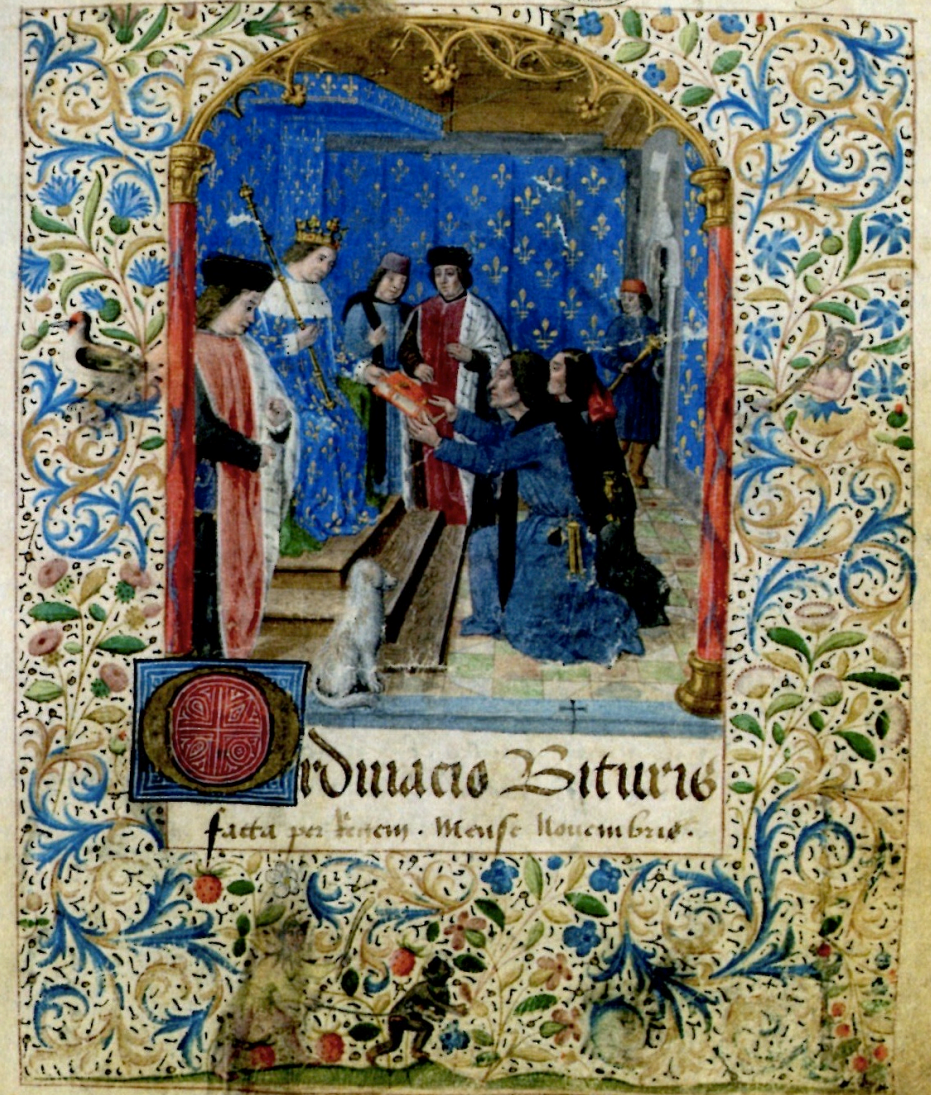 Ordinacio Bituris
facta per Regem. Mense Nouembris.